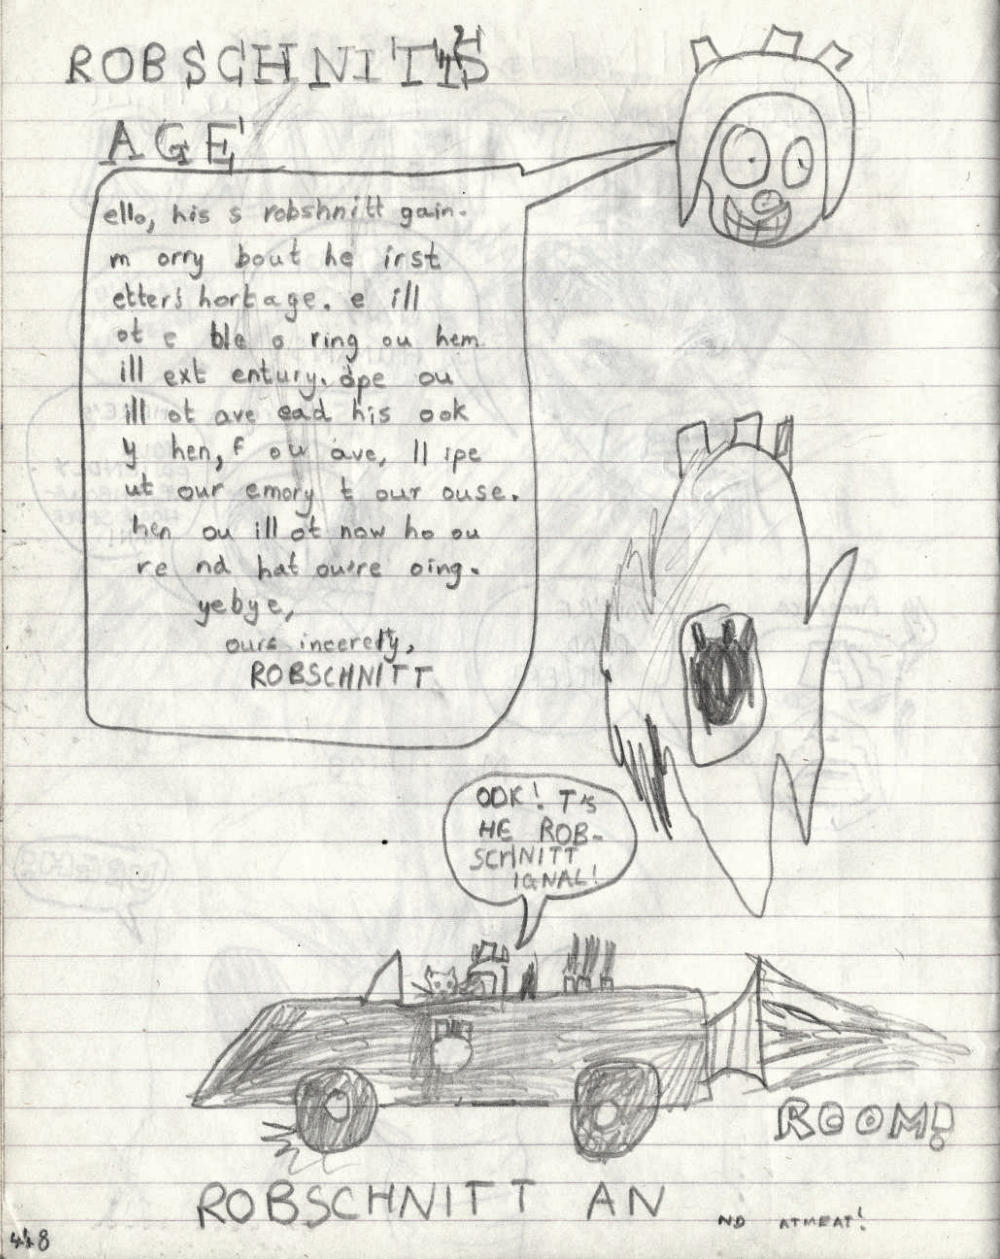 ROBSCHNITT'S
AGE'
ello, his s robshnitt gain.
m orry bout he irst
etter's hortage. e ill
ot e ble o ring ou hem
ill ext entury. ope ou
ill ot ave ead his ook
y hen, f ou ave, ll ipe
ut our emory t our ouse.
hen ou ill ot now ho ou
re nd hat ou're oing.
yebye,
ours incerely,
ROBSCHNITT
OOK! T'S
HE ROB-
SCHNITT
IGNAL!
ROOM!
ROBSCHNITT AN
ND ATMEAT!
448